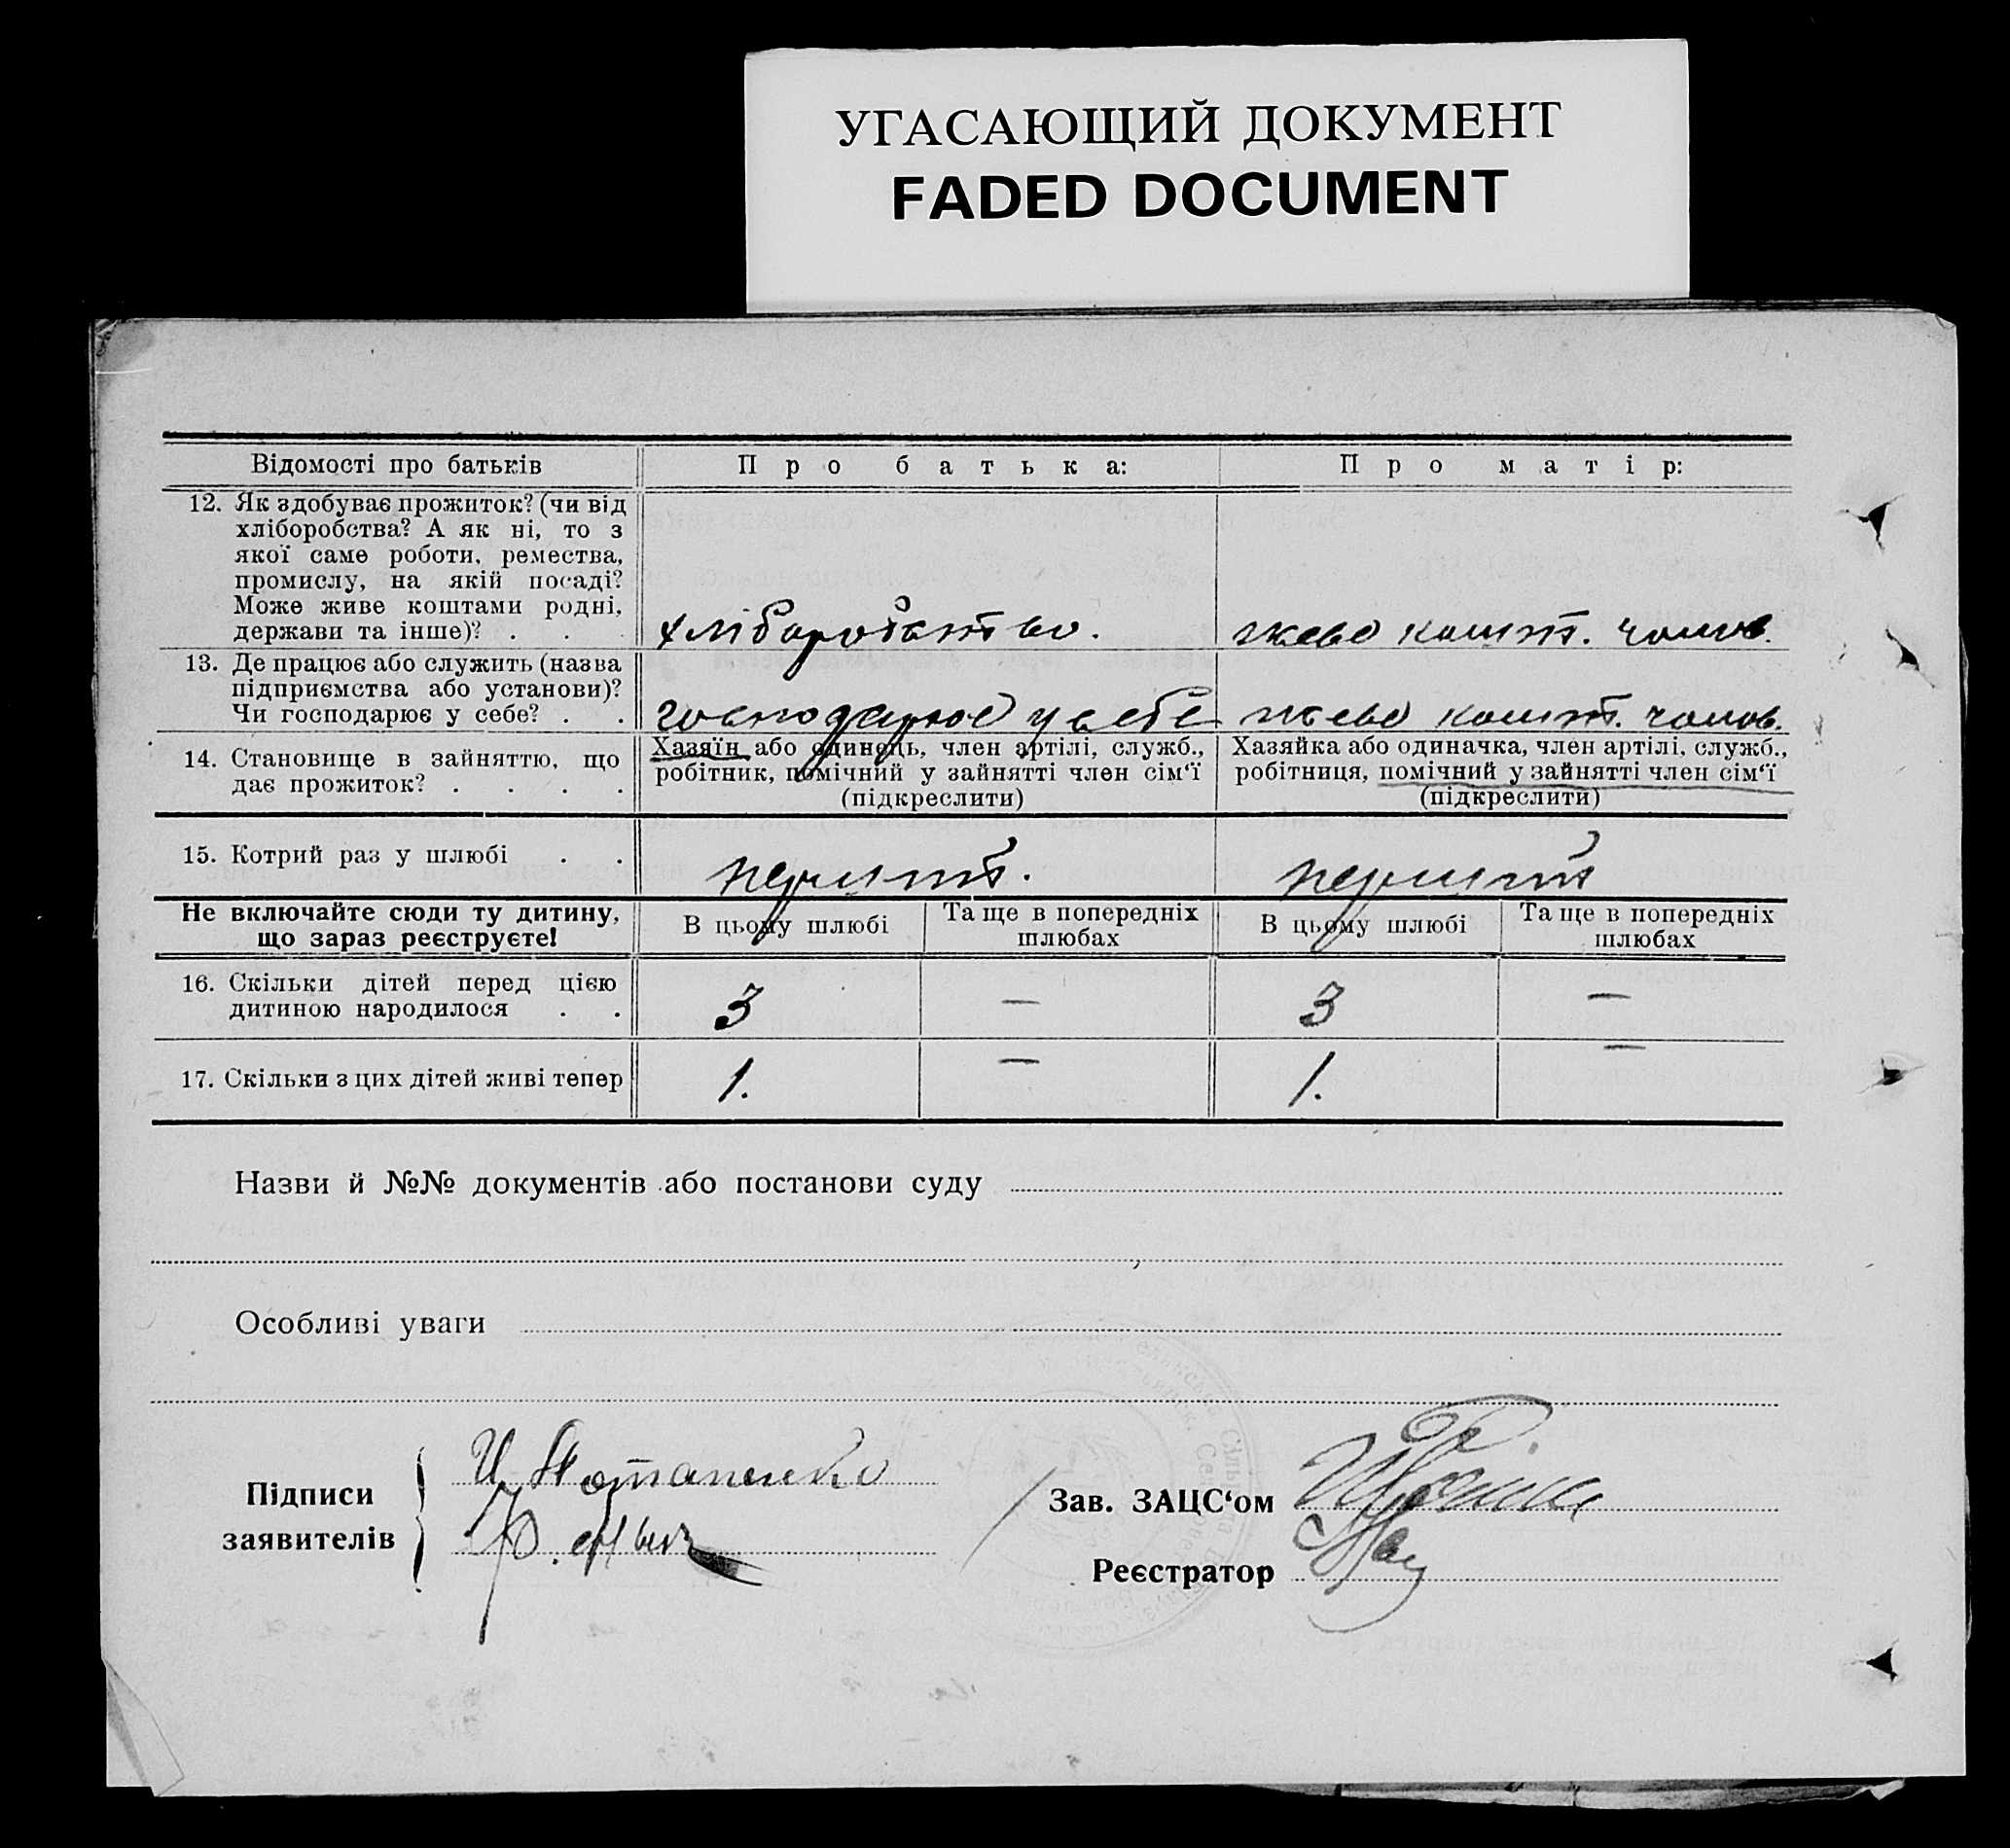 УГАСАЮЩИЙ ДОКУМЕНТ
FADED DOCUMENT
Відомості про батьків
Про батька:
Про матір:
12. Як здобуває прожиток? (чи від
хліборобства? А як ні, то з
якої саме роботи, ремества,
промислу, на якій посаді?
Може живе коштами родні,
держави та інше)? . . .
хліборобство.
живе кошт. чолов.
13. Де працює або служить (назва
підприємства або установи)?
Чи господарює у себе? . .
господарює у себе
живе кошт. чолов.
14. Становище в зайняттю, що
дає прожиток? . . . .
Хазяїн або одинець, член артілі, служб.,
робітник, помічний у зайнятті член сім‘ї
(підкреслити)
Хазяйка або одиначка, член артілі, служб.,
робітниця, помічний у зайнятті член сім‘ї
(підкреслити)
15. Котрий раз у шлюбі . .
перший.
перший
Не включайте сюди ту дитину,
що зараз реєструєте!
В цьому шлюбі
Та ще в попередніх
шлюбах
В цьому шлюбі
Та ще в попередніх
шлюбах
16. Скільки дітей перед цією
дитиною народилося . .
3
—
3
—
17. Скільки з цих дітей живі тепер
1.
—
1.
—
Назви й №№ документів або постанови суду
Особливі уваги
Підписи
заявителів
И Потапенко
Зав. ЗАЦС‘ом
Реєстратор